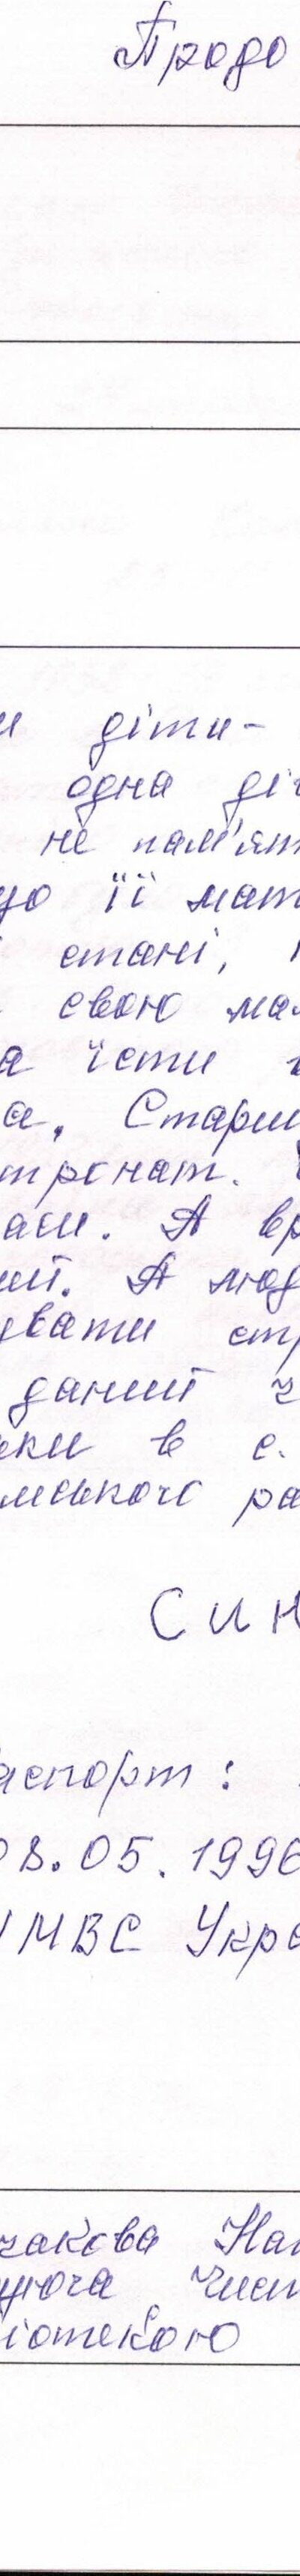 Продо
и діти-
одна дів
не пам'ят
що її мат
стані,
свою ма
а їсти
а. Старш
тронат.
али. А вр
ий. А люд
увати стр
даний з
ки в с.
мського ра
Син
аспорт:
08.05.1996
УМВС Укра
закова На
дуюча Чист
ліотекою